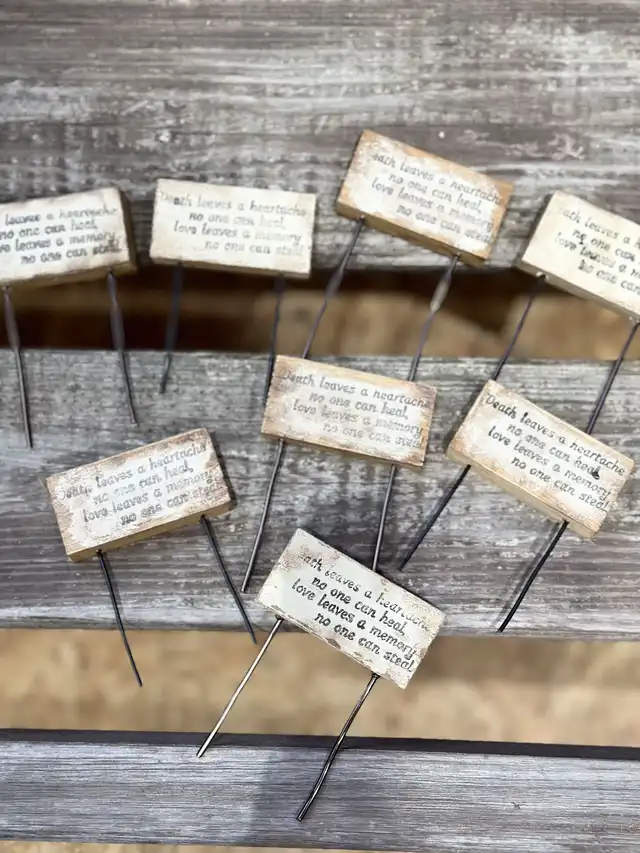 leaves a heartache
no one can heal,
love leaves a memory
no one can steal.
Death leaves a heartache
no one can heal,
love leaves a memory,
no one can steal.
leaves a heartache
no one can heal,
love leaves a memory,
no one can steal.
leaves a
no one can
love leaves a
no one can
Death leaves a heartache
no one can heal,
love leaves a memory
no one can steal
Death leaves a heartache
no one can heal,
love leaves a memory,
no one can steal.
Death leaves a heartache
no one can heal,
love leaves a memory
no one can steal
leaves a heartache
no one can heal,
love leaves a memory,
no one can steal.